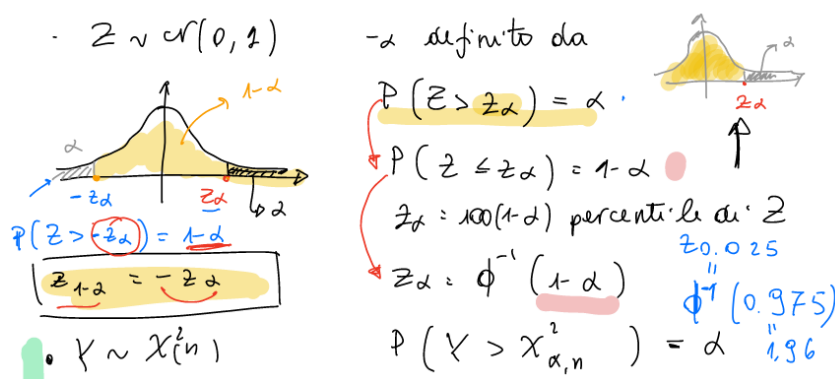 · Z ~ N(0,1)
1-α
α
-zα
zα
α
P(Z > -zα) = 1-α
z1-α = -zα
• Y ~ X²(n)
-α definito da
P(Z > zα) = α
P(Z ≤ zα) = 1-α
zα = 100(1-α) percentile di Z
zα = ϕ⁻¹(1-α)
P(Y > X²α,n) = α
α
zα
z0.025
=
ϕ⁻¹(0.975)
=
1,96